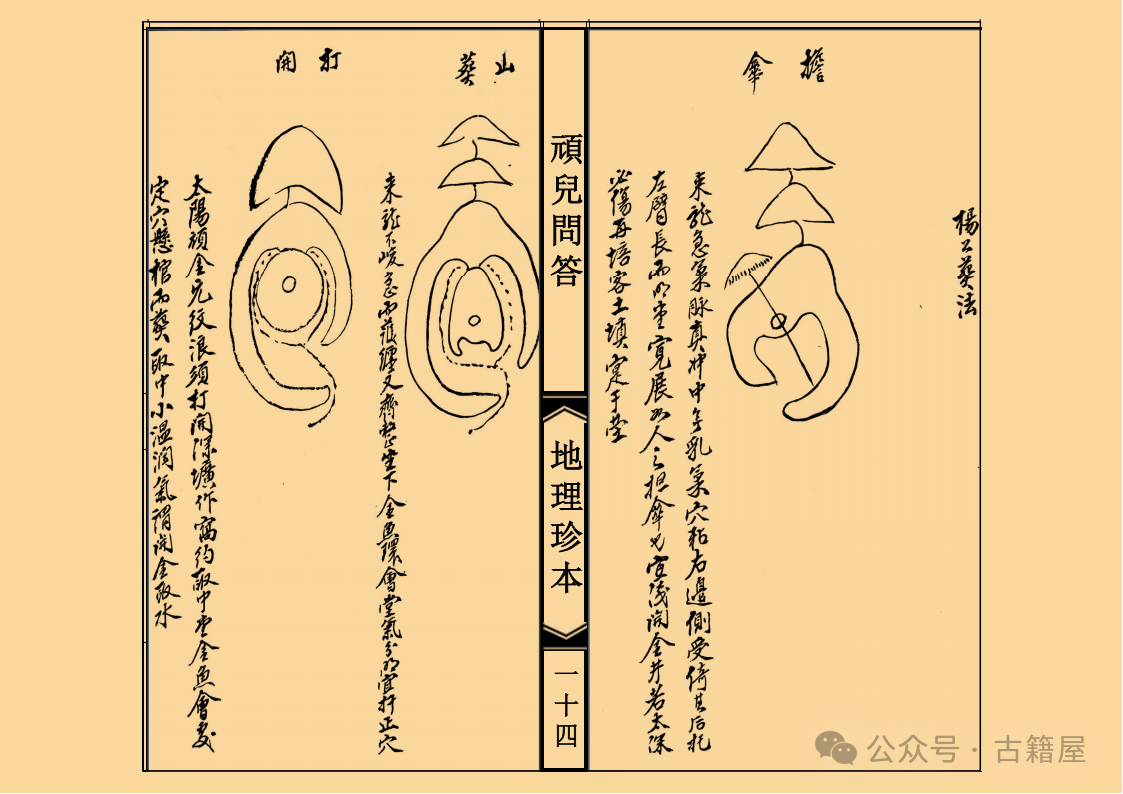 楊公葬法
擔傘
來龍急氣脈真冲中乳氣穴粘右邊側受倚其后托
左臂長而明堂寬展如人之担傘也宜浅開金井若太深
必傷再培客土填定于塋
頑兒問答
地理珍本
一十四
山葬
來龍不峻急而護纏又齊整坐下金魚環會堂氣分明宜扦正穴
打開
太陽頑金元紋浪須打開深壙作窩約取中堂金魚會處
定穴懸棺而葬取中小溫潤氣謂開金取水
公众号 · 古籍屋